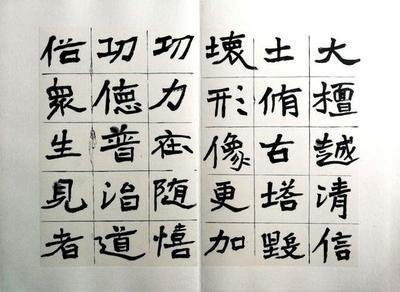 大檀越清信
土侑右塔毀
壞形像更加
功力在随憘
功德普治道
俗衆生見者